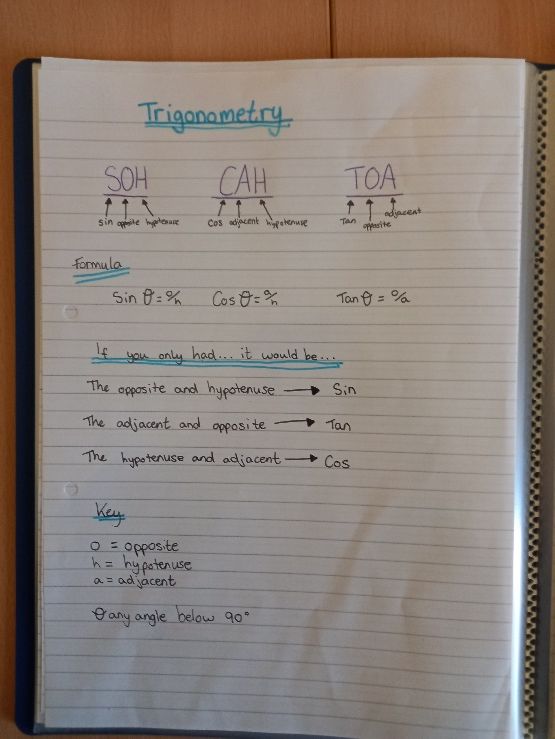 Trigonometry
SOH CAH TOA
Sin opposite hypotenuse Cos adjacent hypotenuse Tan opposite adjacent
Formula
Sin θ = o/h Cos θ = a/h Tan θ = o/a
If you only had... it would be...
The opposite and hypotenuse → Sin
The adjacent and opposite → Tan
The hypotenuse and adjacent → Cos
Key
o = opposite
h = hypotenuse
a = adjacent
θ any angle below 90°